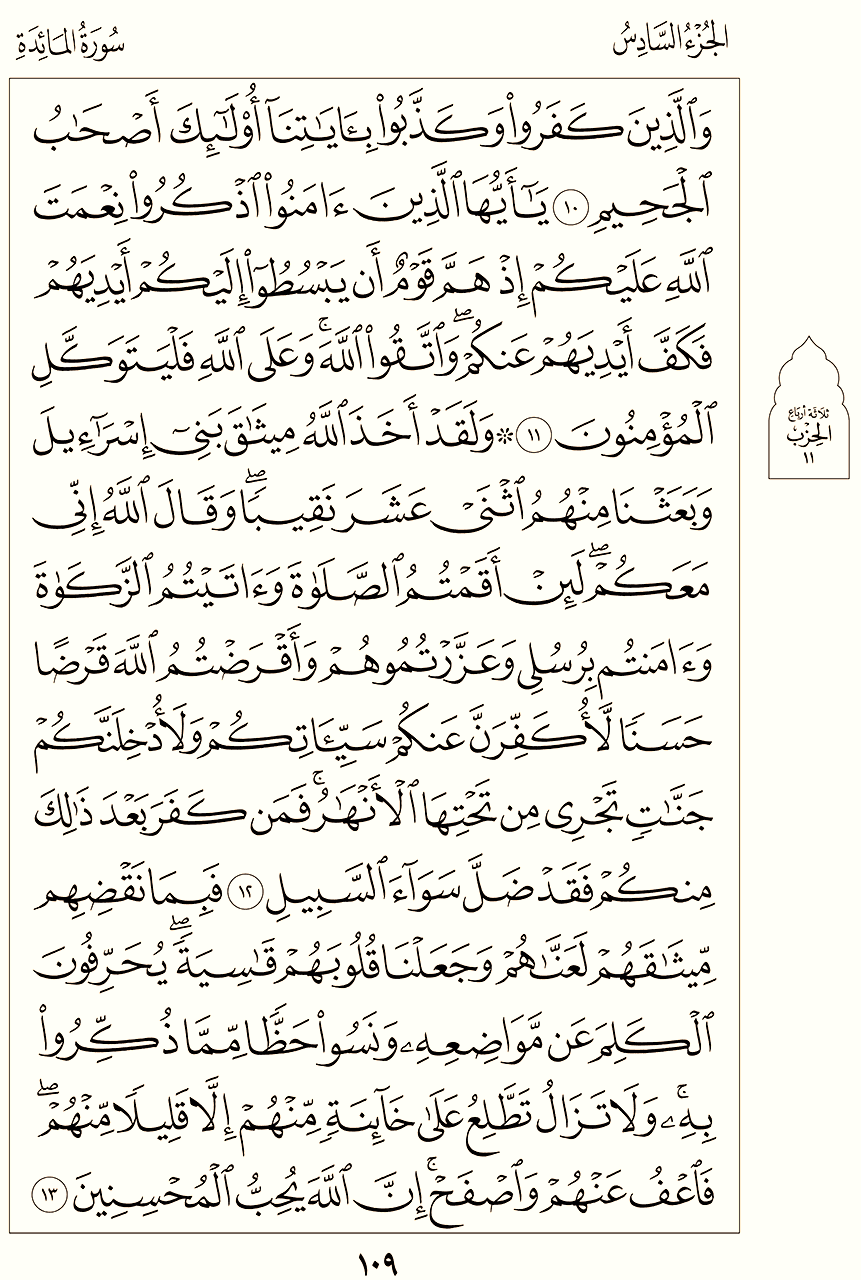 الجُزْءُ السَّادِسُ
سُورَةُ المَائِدَةِ
وَٱلَّذِينَ كَفَرُوا۟ وَكَذَّبُوا۟ بِـَٔايَـٰتِنَآ أُو۟لَـٰٓئِكَ أَصْحَـٰبُ
ٱلْجَحِيمِ ١٠ يَـٰٓأَيُّهَا ٱلَّذِينَ ءَامَنُوا۟ ٱذْكُرُوا۟ نِعْمَتَ
ٱللَّهِ عَلَيْكُمْ إِذْ هَمَّ قَوْمٌ أَن يَبْسُطُوٓا۟ إِلَيْكُمْ أَيْدِيَهُمْ
فَكَفَّ أَيْدِيَهُمْ عَنكُمْ ۖ وَٱتَّقُوا۟ ٱللَّهَ ۚ وَعَلَى ٱللَّهِ فَلْيَتَوَكَّلِ
ٱلْمُؤْمِنُونَ ١١ ۞ وَلَقَدْ أَخَذَ ٱللَّهُ مِيثَـٰقَ بَنِىٓ إِسْرَٰٓءِيلَ
وَبَعَثْنَا مِنْهُمُ ٱثْنَىْ عَشَرَ نَقِيبًا ۖ وَقَالَ ٱللَّهُ إِنِّى
مَعَكُمْ ۖ لَئِنْ أَقَمْتُمُ ٱلصَّلَوٰةَ وَءَاتَيْتُمُ ٱلزَّكَوٰةَ
وَءَامَنتُم بِرُسُلِى وَعَزَّرْتُمُوهُمْ وَأَقْرَضْتُمُ ٱللَّهَ قَرْضًا
حَسَنًا لَّأُكَفِّرَنَّ عَنكُمْ سَيِّـَٔاتِكُمْ وَلَأُدْخِلَنَّكُمْ
جَنَّـٰتٍ تَجْرِى مِن تَحْتِهَا ٱلْأَنْهَـٰرُ ۚ فَمَن كَفَرَ بَعْدَ ذَٰلِكَ
مِنكُمْ فَقَدْ ضَلَّ سَوَآءَ ٱلسَّبِيلِ ١٢ فَبِمَا نَقْضِهِم
مِّيثَـٰقَهُمْ لَعَنَّـٰهُمْ وَجَعَلْنَا قُلُوبَهُمْ قَـٰسِيَةً ۖ يُحَرِّفُونَ
ٱلْكَلِمَ عَن مَّوَاضِعِهِۦ وَنَسُوا۟ حَظًّا مِّمَّا ذُكِّرُوا۟
بِهِۦ ۚ وَلَا تَزَالُ تَطَّلِعُ عَلَىٰ خَآئِنَةٍ مِّنْهُمْ إِلَّا قَلِيلًا مِّنْهُمْ ۖ
فَٱعْفُ عَنْهُمْ وَٱصْفَحْ ۚ إِنَّ ٱللَّهَ يُحِبُّ ٱلْمُحْسِنِينَ ١٣
ثلاثة أرباع
الحِزْب
١١
١٠٩